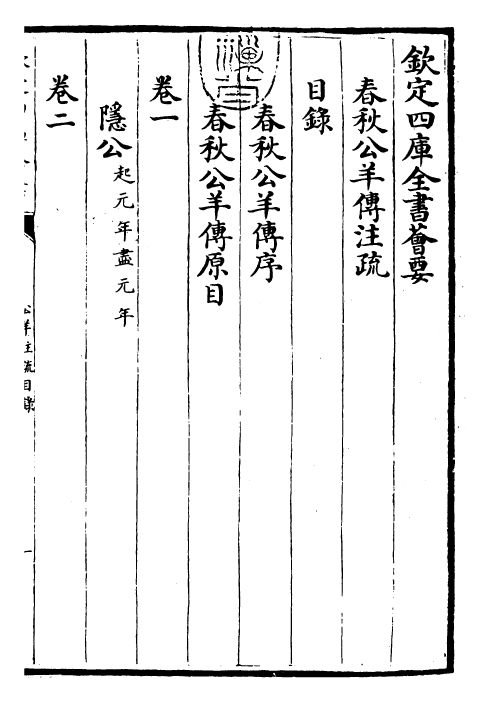 欽定四庫全書薈要
春秋公羊傳注疏
目錄
春秋公羊傳序
春秋公羊傳原目
卷一
隱公起元年盡元年
卷二
公羊注疏目錄
一